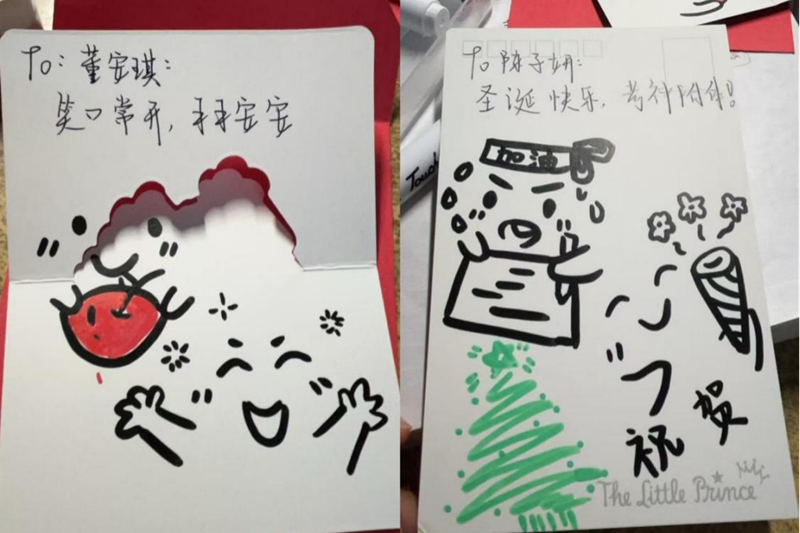 To: 董安琪:
笑口常开, 平平安安
To 陈子妍:
圣诞快乐, 考神附体!
Touch
加油
祝
贺
The Little Prince